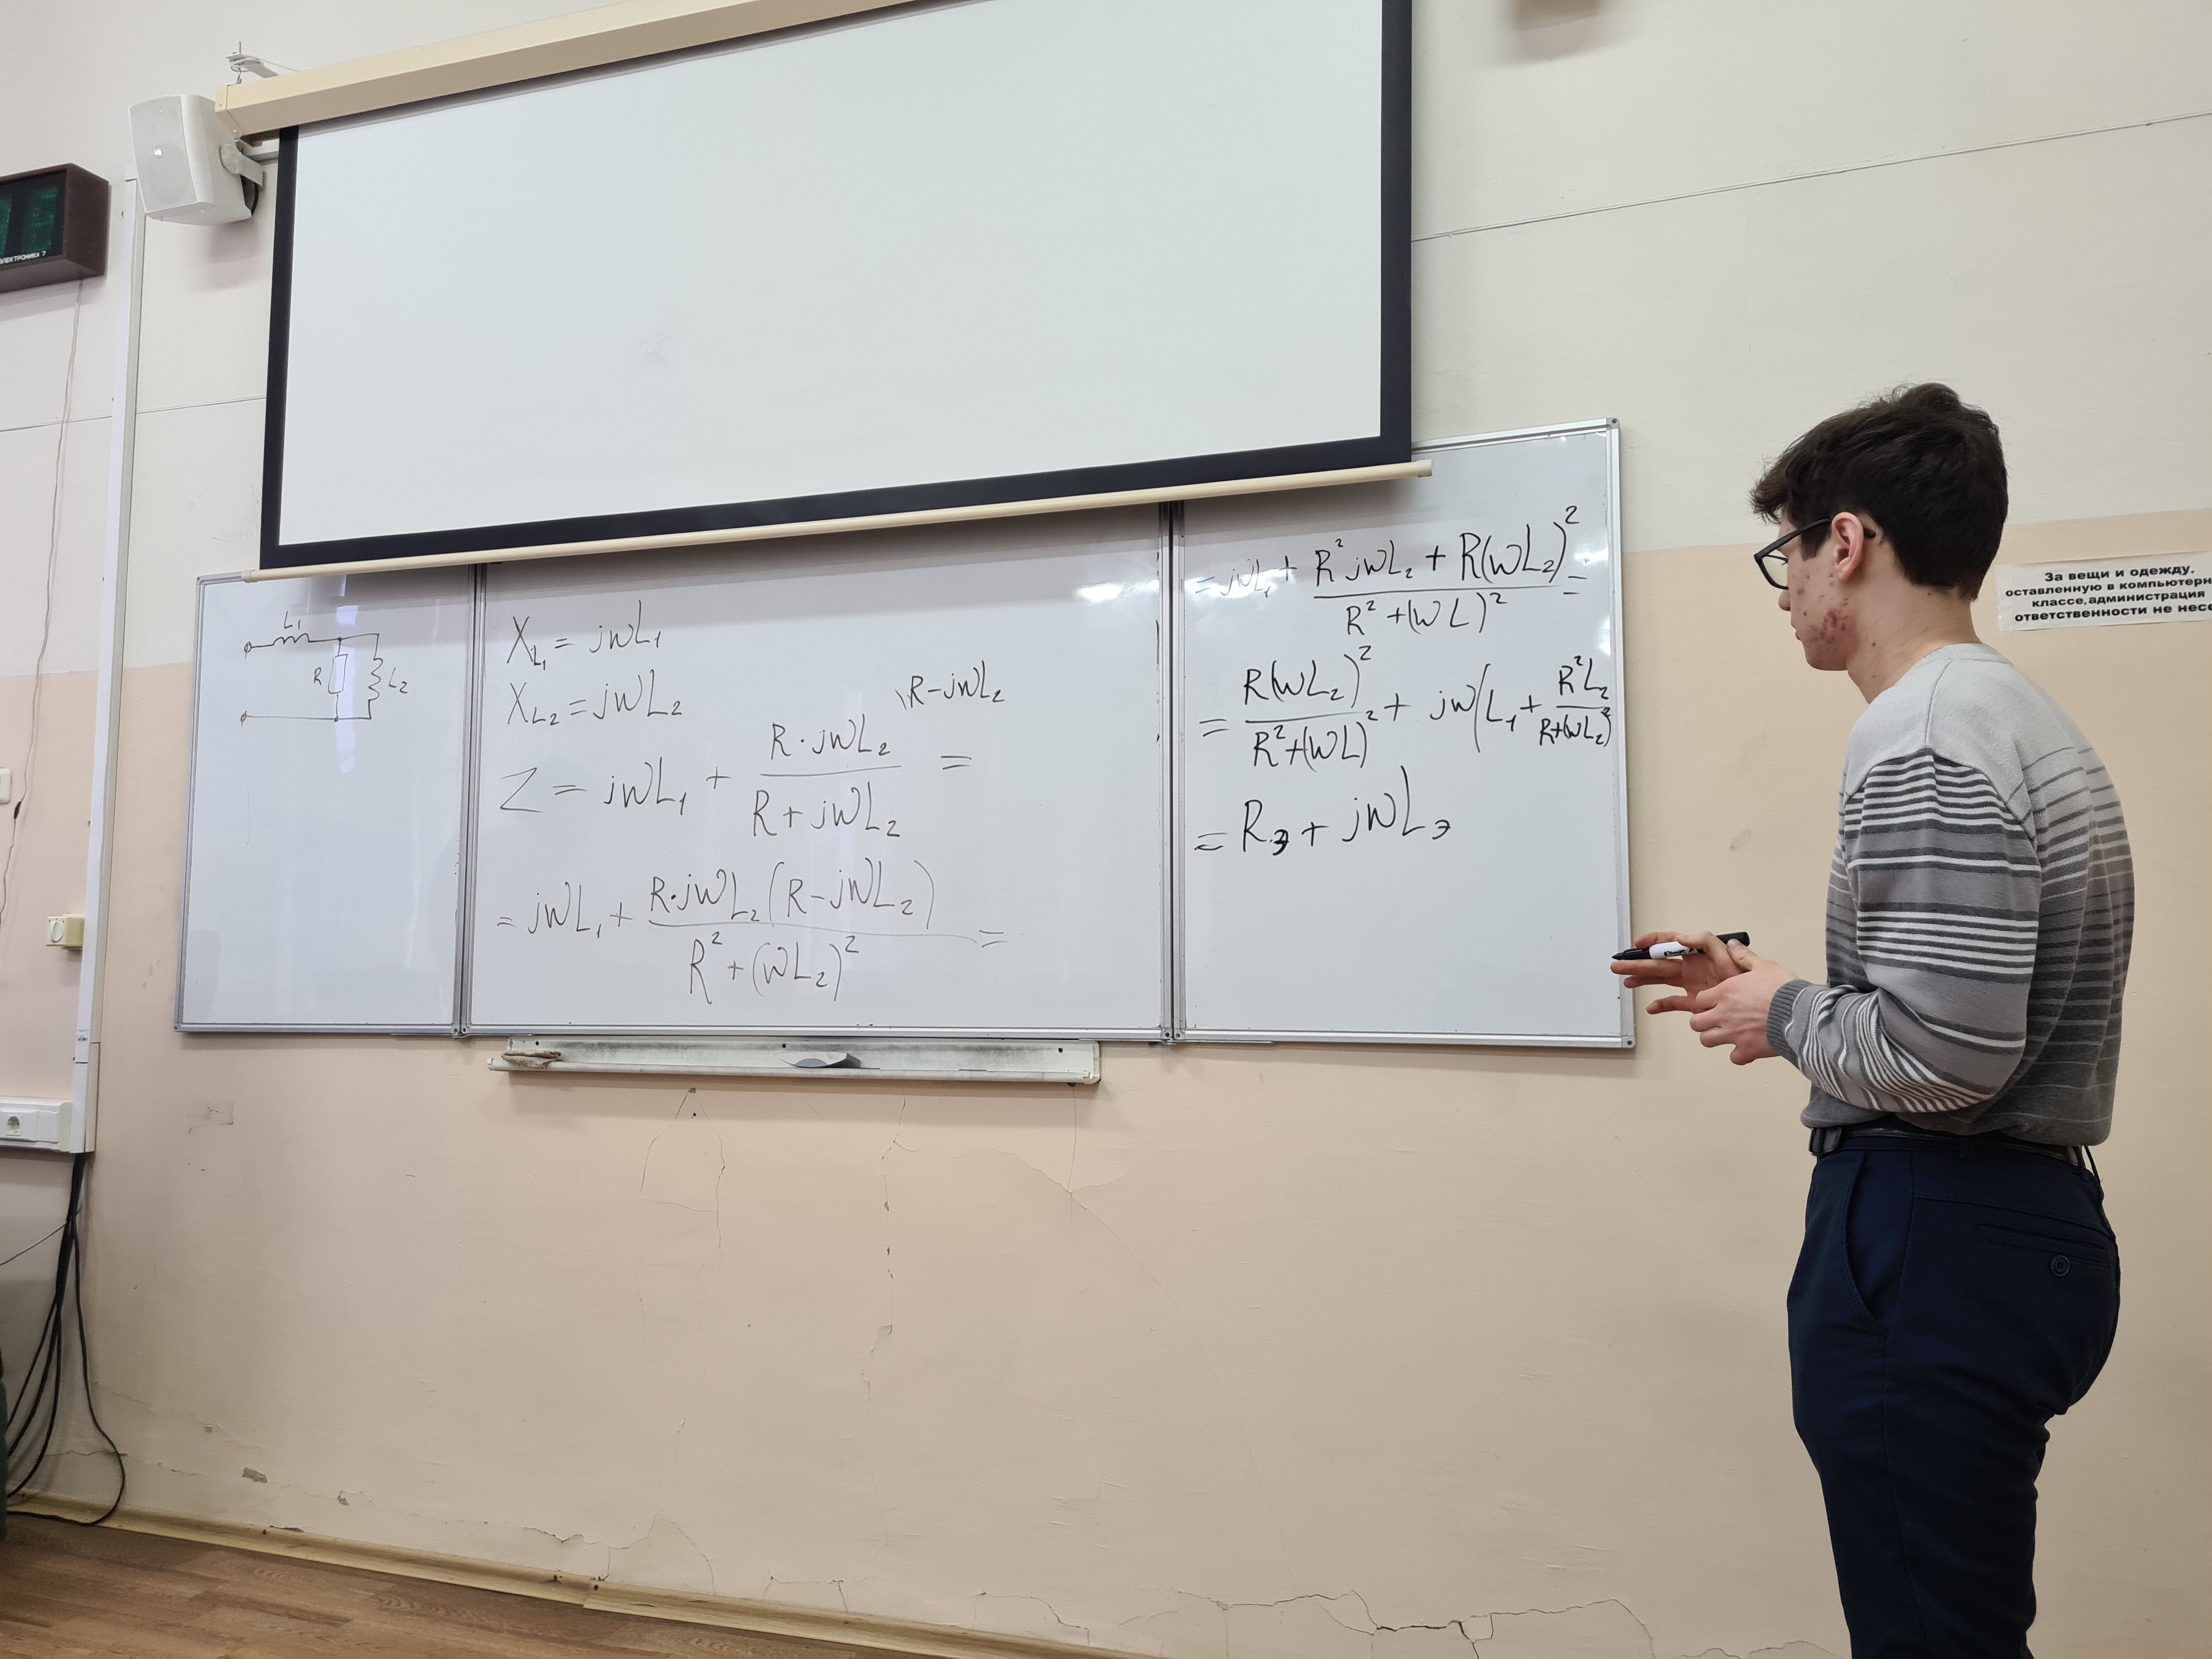 ЭЛЕКТРОНИКА 7
L₁
R
L₂
X_L₁ = jωL₁
X_L₂ = jωL₂
\R-jωL₂
Z = jωL₁ + (R·jωL₂)/(R+jωL₂) =
= jωL₁ + (R·jωL₂(R-jωL₂))/(R²+(ωL₂)²) =
= jωL₁ + (R²jωL₂ + R(ωL₂)²)/(R²+(ωL)²) =
= (R(ωL₂)²)/(R²+(ωL)²) + jω(L₁+(R²L₂)/(R+(ωL₂)²)
= R_э + jωL_э
За вещи и одежду,
оставленную в компьютерн
классе, администрация
ответственности не несе